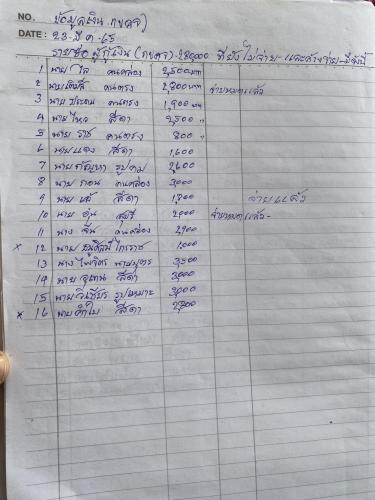 NO. ข้อมูลเงิน กขคจ)
DATE: 23-มี.ค-65
รายชื่อ ผู้กู้เงิน (กขคจ)-280000 ที่ยังไม่จ่าย-และค้างจ่าย-มีดังนี้
1 นาย ใส คนคล่อง 2,500บาท
2 นายสมศรี คนตรง 2,800บาท จ่ายหมดแล้ว
3 นาย ประดม คนตรง 1,900 บาท
4 นาย ไหล สีดา 2,500 "
5 นาย ราช คนตรง 800 "
6 นาย แดง สีดา 1,600
7 นาย กัณหา รูปงาม 2,600
8 นาย กอน คนคล่อง 3,000
9 นาย สีดา 1,800 จ่ายแล้ว
10 นาย อุ่น สุขรี่ 2,000 จ่ายหมดแล้ว-
11 นาง จีน คนคล่อง 2,900
x 12 นาย ไกรราช 1,000
13 นาง ไพจิตร นามบุตร 3,500
14 นาย อุดม สีดา 3,000
15 นาย วิเชียร รูปเหมาะ 3,000
x 16 นาย คำใบ สีดา 2,700